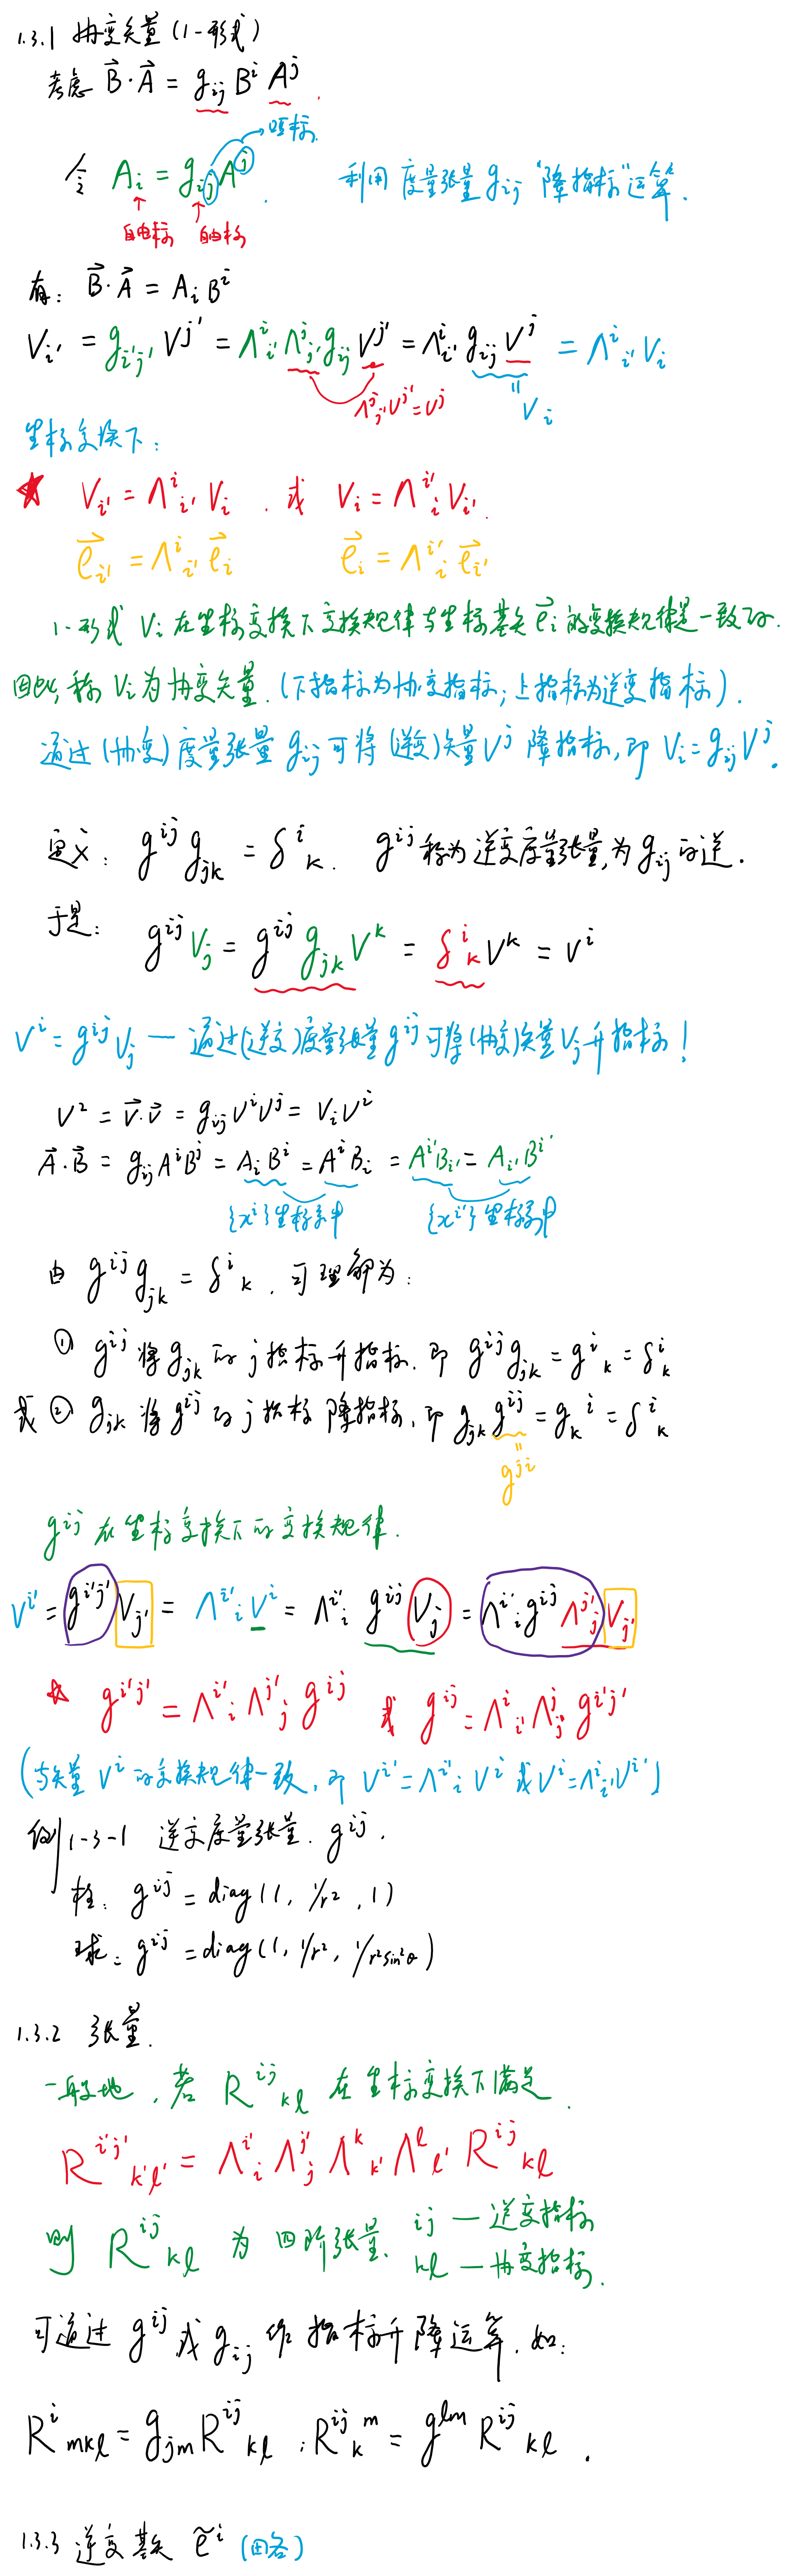 1.3.1 协变矢量(1-形式)
考虑 \vec{B}·\vec{A} = g_{ij} B^i A^j.
哑标.
令 A_i = g_{ij}A^j. 利用度量张量 g_{ij} “降指标”运算.
自由标 自由标
有: \vec{B}·\vec{A} = A_i B^i
V_{i'} = g_{i'j'} V^{j'} = Λ^i_{i'} Λ^j_{j'} g_{ij} V^{j'} = Λ^i_{i'} g_{ij} V^j = Λ^i_{i'} V_i
Λ^j_{j'} V^{j'} = V^j
"
V_i
坐标变换下:
☆ V_{i'} = Λ^i_{i'} V_i. 或 V_i = Λ^{i'}_i V_{i'}.
\vec{e}_{i'} = Λ^i_{i'} \vec{e}_i \vec{e}_i = Λ^{i'}_i \vec{e}_{i'}
1-形式 V_i 在坐标变换下变换规律与坐标基矢 \vec{e}_i 的变换规律是一致的.
因此,称 V_i 为协变矢量.(下指标为协变指标;上指标为逆变指标).
通过(协变)度量张量 g_{ij} 可将(逆变)矢量 V^j 降指标,即 V_i = g_{ij}V^j.
定义: g^{ij} g_{jk} = δ^i_k. g^{ij} 称为逆变度量张量,为 g_{ij} 的逆.
于是: g^{ij} V_j = g^{ij} g_{jk} V^k = δ^i_k V^k = V^i
V^i = g^{ij} V_j — 通过(逆变)度量张量 g^{ij} 可将(协变)矢量 V_j 升指标!
V^2 = \vec{V}·\vec{V} = g_{ij} V^i V^j = V_i V^i
\vec{A}·\vec{B} = g_{ij} A^i B^j = A_i B^i = A^i B_i = A^{i'} B_{i'} = A_{i'} B^{i'}
{x^i}坐标系中 {x^{i'}}坐标系中
由 g^{ij} g_{jk} = δ^i_k. 可理解为:
① g^{ij} 将 g_{jk} 的 j 指标升指标. 即 g^{ij} g_{jk} = g^i_k = δ^i_k
或 ② g_{jk} 将 g^{ij} 的 j 指标降指标, 即 g_{jk} g^{ij} = g_k^i = δ^i_k
"
g^{ji}
g^{ij} 在坐标变换下的变换规律.
V^{i'} = g^{i'j'} V_{j'} = Λ^{i'}_i V^i = Λ^{i'}_i g^{ij} V_j = Λ^{i'}_i g^{ij} Λ^{j'}_j V_{j'}
☆ g^{i'j'} = Λ^{i'}_i Λ^{j'}_j g^{ij} 或 g^{ij} = Λ^i_{i'} Λ^j_{j'} g^{i'j'}
(与矢量 V^i 的变换规律一致, 即 V^{i'} = Λ^{i'}_i V^i 或 V^i = Λ^i_{i'} V^{i'})
例1-3-1 逆变度量张量. g^{ij}.
柱: g^{ij} = diag(1, 1/r^2, 1)
球: g^{ij} = diag(1, 1/r^2, 1/r^2sin^2θ)
1.3.2 张量.
一般地,若 R^{ij}_{kl} 在坐标变换下满足.
R^{i'j'}_{k'l'} = Λ^{i'}_i Λ^{j'}_j Λ^k_{k'} Λ^l_{l'} R^{ij}_{kl}
则 R^{ij}_{kl} 为四阶张量. ij — 逆变指标
kl — 协变指标.
可通过 g^{ij} 或 g_{ij} 作指标升降运算. 如:
R^i_{mkl} = g_{jm} R^{ij}_{kl} ; R^{ij}_k^m = g^{lm} R^{ij}_{kl}.
1.3.3 逆变基矢 \tilde{e}^i (略)